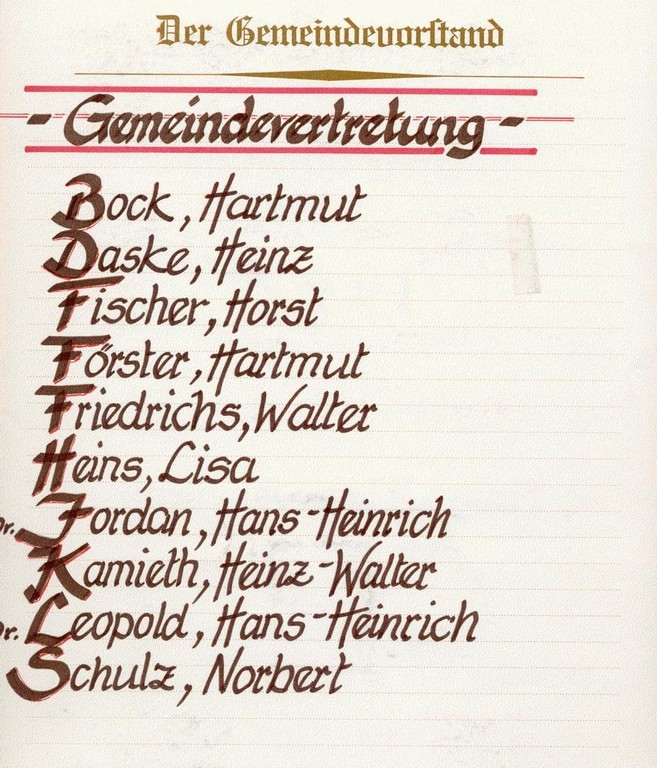 Der Gemeindevorstand
- Gemeindevertretung -
Bock, Hartmut
Daske, Heinz
Fischer, Horst
Förster, Hartmut
Friedrichs, Walter
Heins, Lisa
Dr. Jordan, Hans-Heinrich
Kamieth, Heinz-Walter
Dr. Leopold, Hans-Heinrich
Schulz, Norbert